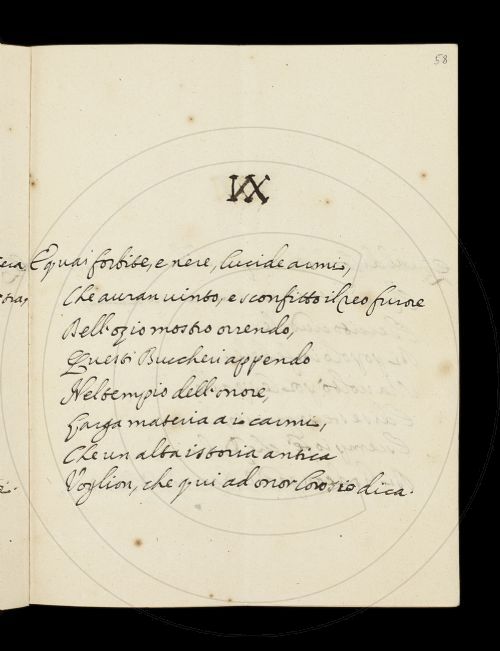 58
IVX
E quai forbite, e nere, lucide armi,
Che auran uinto, e sconfitto il reo furore
Dell'ozio mostro orrendo,
Questi Buccheri appendo
Nel tempio dell'onore,
Larga materia a i carmi,
Che un'alta istoria antica
Voglion, che qui ad onor loro io dica.